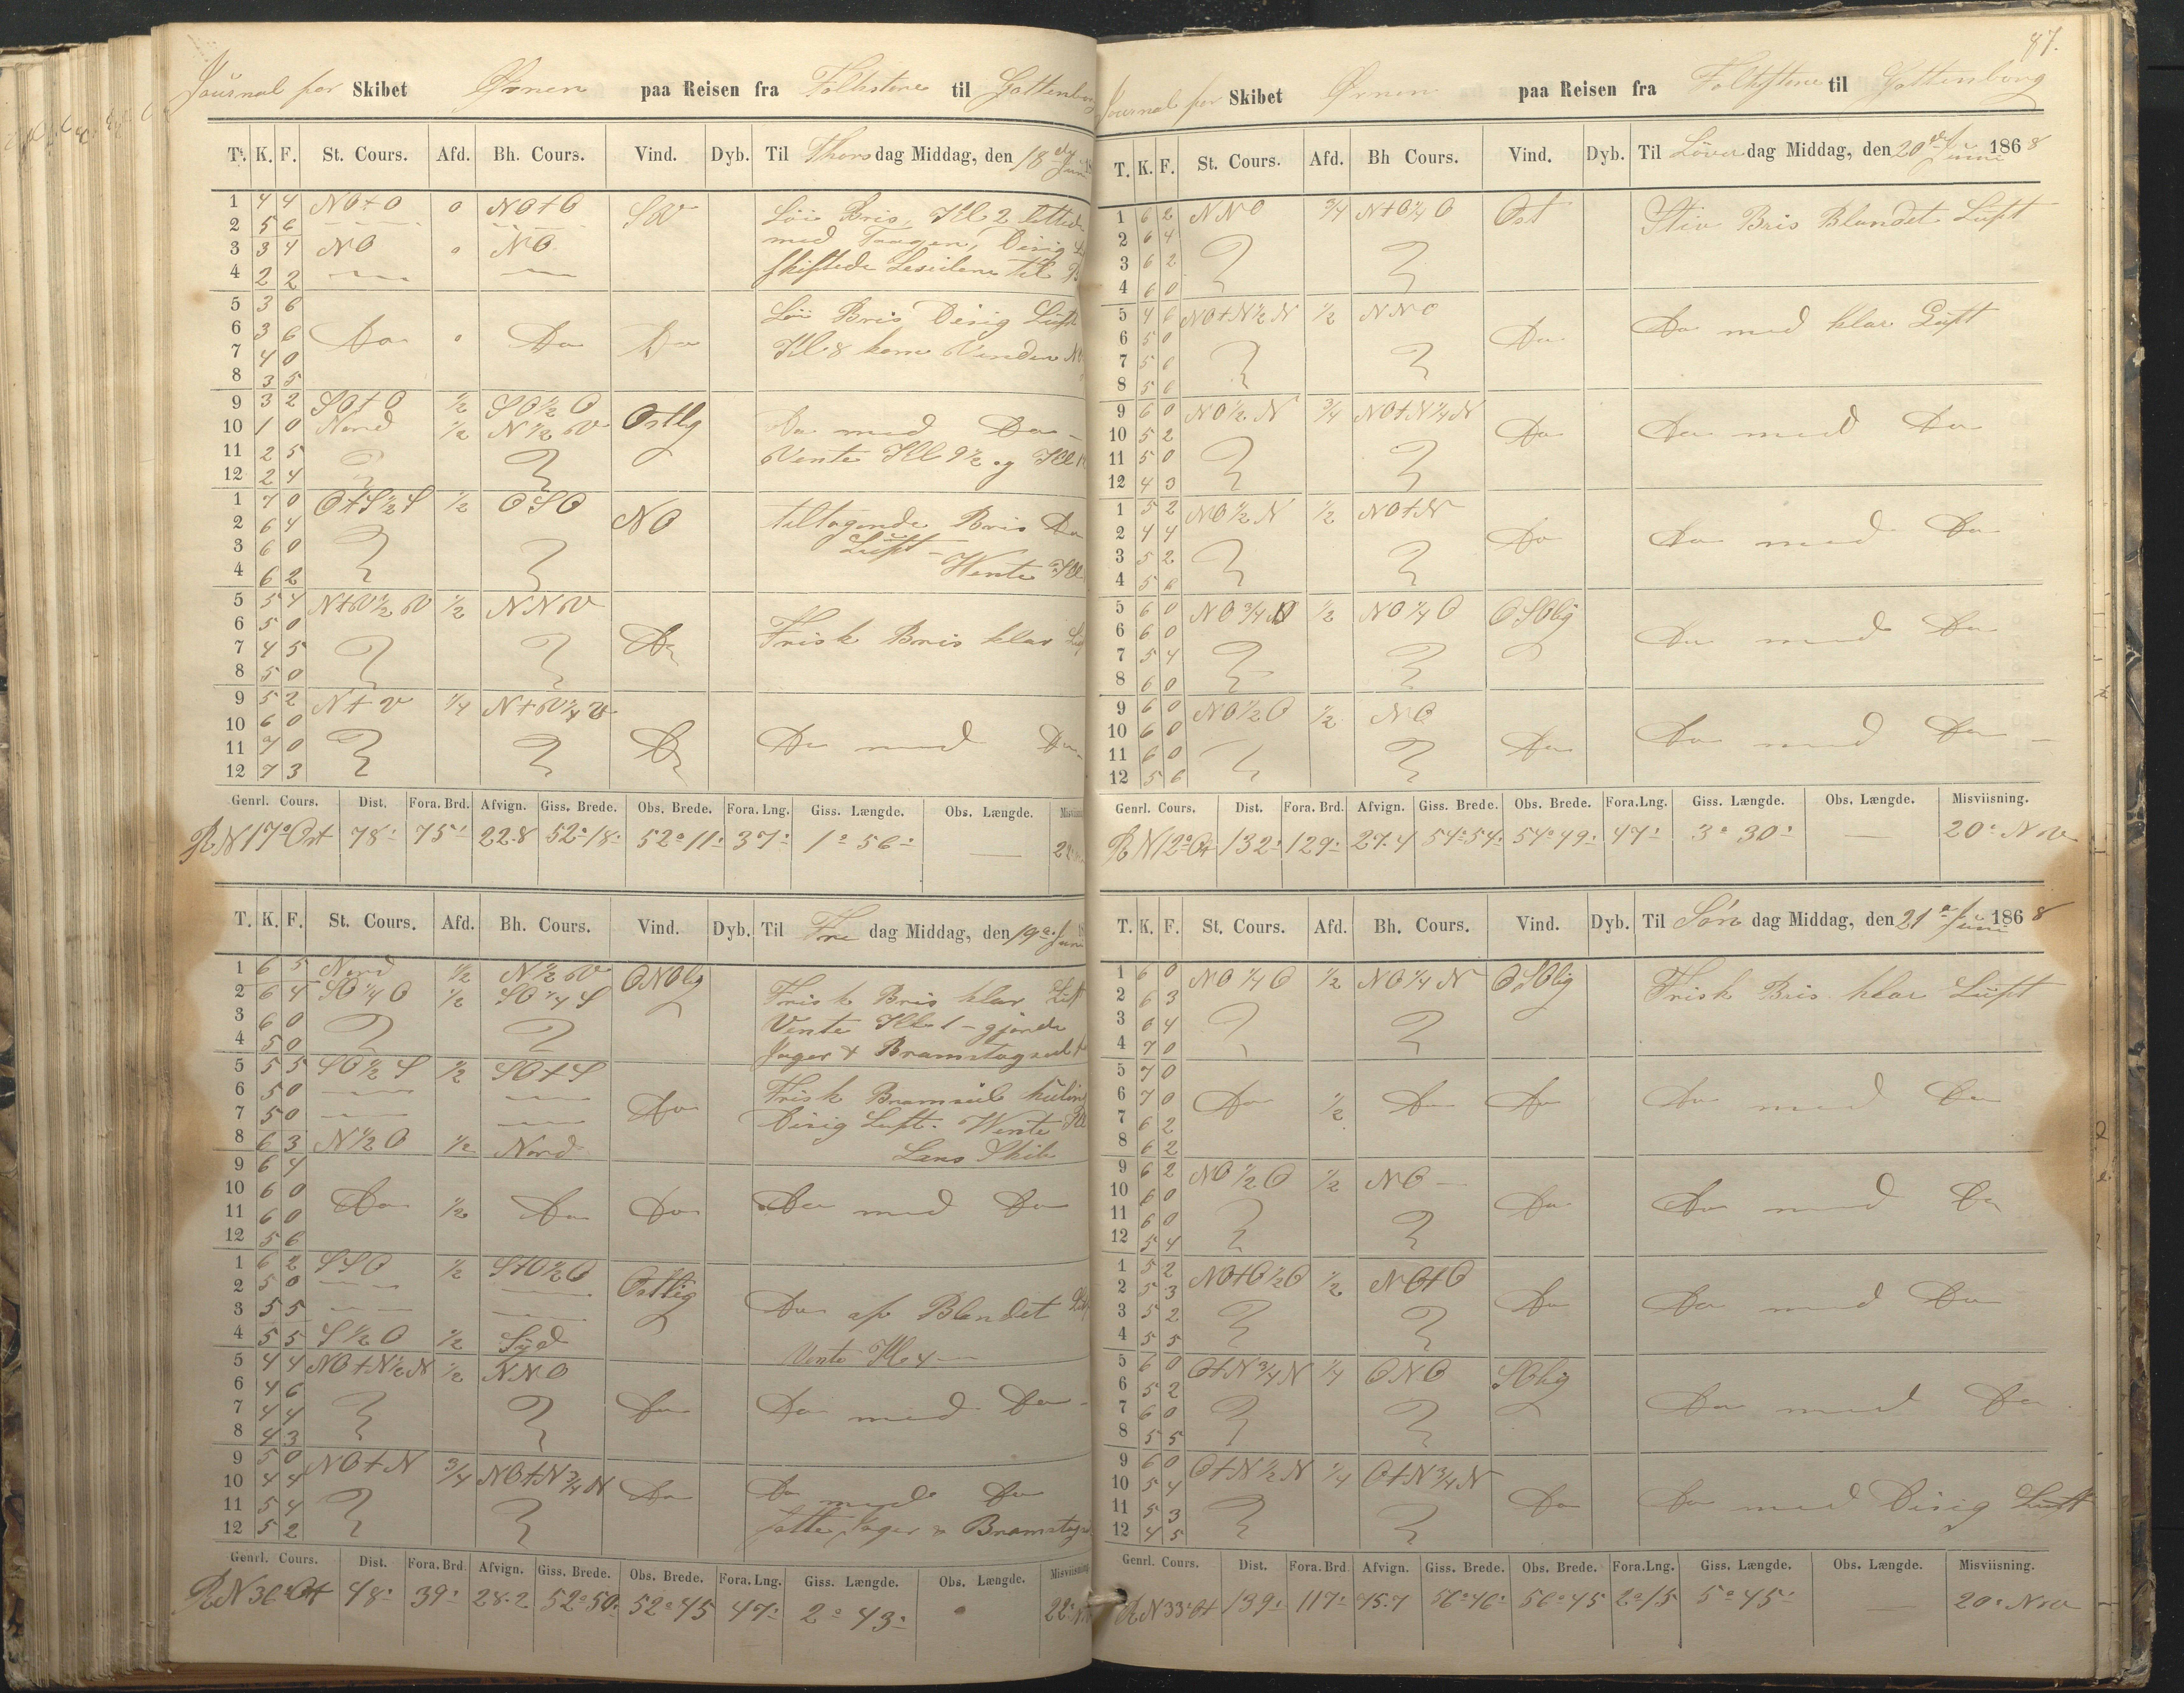 Journal for Skibet Ørnen paa Reisen fra Folkstone til Gottenborg
T. K. F. St. Cours. Afd. Bh. Cours. Vind. Dyb. Til Thorsdag Middag, den 18de Juni
1 4 4 NO+O 0 NO+O SW Löi Bris, Kl 2 lettede
2 5 6 med Taagen, Disig
3 3 4 NO 0 NO skiftede Leseilene til
4 2 2
5 3 6 Löi Bris Disig Luft
6 3 6 Do 0 Do Do
7 4 0 Kl 8 kom Vinden
8 3 5
9 3 2 SO+O 1/2 SO1/2 O Ostlig Do med Do
10 1 0 Nord 1/2 N 1/2 W
11 2 5 Vente Kl 9½ og Kl
12 2 4
1 7 0 O+S½S 1/2 OSO NO tiltagende Bris Do
2 6 4 Luft
3 6 0 Wente Kl
4 6 2
5 5 4 N+W½W 1/2 NNW
6 5 0 Do Frisk Bris klar
7 4 5
8 5 0
9 5 2 N+W 1/4 N+W¼W
10 6 0 Do Do med Do
11 7 0
12 7 3
Genrl. Cours. Dist. Fora. Brd. Afvign. Giss. Brede. Obs. Brede. Fora. Lng. Giss. Længde. Obs. Længde.
R N 17° Ost 78' 75' 22.8 52°18' 52°11' 37' 1°56' —
T. K. F. St. Cours. Afd. Bh. Cours. Vind. Dyb. Til Fredag Middag, den 19de Juni
1 6 5 Nord 1/2 N½W ONOlig Frisk Bris klar Luft
2 6 4 SO¼O 1/2 SO¼S Vente Kl 1 - gjorde
3 6 0
4 5 0 Jager & Bramstagseil
5 5 5 SO½S 1/2 SO+S Frisk Bramseils kuling
6 5 0 Do
7 5 0 Disig Luft. Wente Kl
8 6 3 N½O 1/2 Nord Lens Skib
9 6 4
10 6 0 Do 1/2 Do Do Do med Do
11 6 0
12 5 6
1 6 2 SSO 1/2 S+O½O Ostlig
2 5 0 Do af Blandet
3 5 5
4 5 5 S½O 1/2 Syd Vente Kl 4
5 4 4 NO+N½N 1/2 NNO
6 4 6 Do Do med Do
7 4 4
8 4 3
9 5 0 NO+N 3/4 NO+N¾N
10 4 4 Do Do med Do
11 5 4 Jager & Bramstag
12 5 2
Genrl. Cours. Dist. Fora. Brd. Afvign. Giss. Brede. Obs. Brede. Fora. Lng. Giss. Længde. Obs. Længde. Misviisning
R N 36° Ost 48' 39' 28.2 52°50' 52°45 47' 2°43'
87.
Journal for Skibet Ørnen paa Reisen fra Folkstone til Gottenborg
T. K. F. St. Cours. Afd. Bh Cours. Vind. Dyb. Til Löverdag Middag, den 20de Juni 1868
1 6 2 NNO 3/4 N+O¼O Ost Stiv Bris Blandet Luft
2 6 4
3 6 2
4 6 0
5 4 6 NO+N½N 1/2 NNO Do med klar Luft
6 5 0 Do
7 5 6
8 5 6
9 6 0 NO½N 3/4 NO+N¼N
10 5 2 Do Do med Do
11 5 0
12 4 3
1 5 2 NO½N 1/2 NO+N
2 4 4 Do Do med Do
3 5 2
4 5 6
5 6 0 NO¾N 1/2 NO¼O OSOlig
6 6 0 Do med Do
7 5 4
8 6 0
9 6 0 NO½O 1/2 NO
10 6 0 Do med Do
11 6 0 Do
12 5 6
Genrl. Cours. Dist. Fora. Brd. Afvign. Giss. Brede. Obs. Brede. Fora.Lng. Giss. Længde. Obs. Længde. Misviisning.
R N 12° Ost 132' 129' 27.4 54°54' 54°49' 47' 3°30' — 20° NW
T. K. F. St. Cours. Afd. Bh. Cours. Vind. Dyb. Til Søndag Middag, den 21de Juni 1868
1 6 0 NO¼O 1/2 NO¼N OSOlig Frisk Bris klar Luft
2 6 3
3 6 4
4 7 0
5 7 0
6 7 0 Do 1/2 Do Do Do med Do
7 6 2
8 6 2
9 6 2 NO½O 1/2 NO
10 6 0 Do Do med Do
11 6 0
12 5 4
1 5 2 NO+O½O 1/2 NO+O
2 5 3 Do Do med Do
3 5 2
4 5 5
5 6 0 O+N¾N 1/4 ONO SOlig
6 5 2 Do med Do
7 6 0
8 5 5
9 6 0 O+N½N 1/4 O+N¾N
10 5 4 Do Do med Disig Luft
11 5 3
12 4 5
Genrl. Cours. Dist. Fora. Brd Afvign. Giss. Brede. Obs. Brede. Fora.Lng. Giss. Længde. Obs. Længde. Misviisning.
R N 33° Ost 139' 117' 75.7 56°46' 56°45 2°15 5°45' — 20° NW